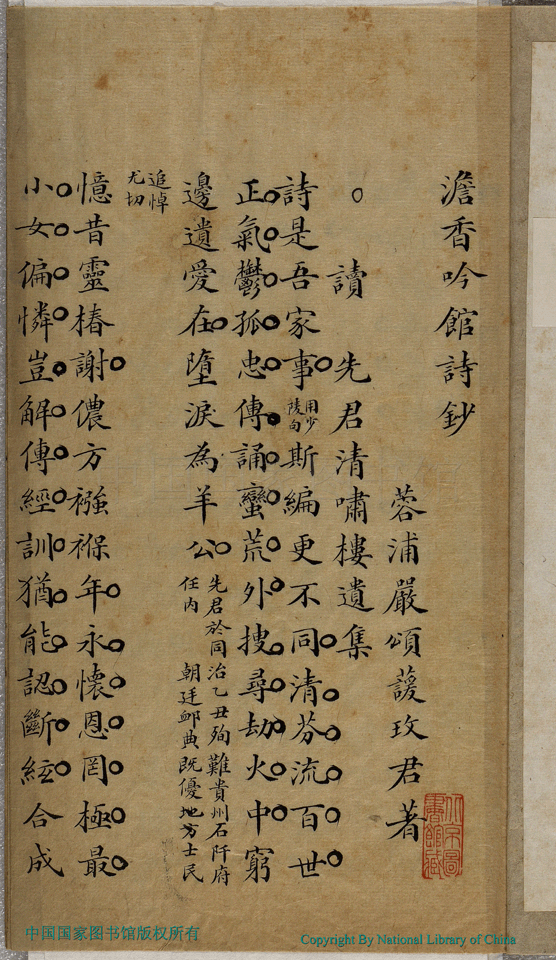 澹香吟館詩鈔
蓉浦嚴頌蕿玫君著
讀 先君清嘯樓遺集
詩是吾家事用少陵句斯編更不同清芬流百世
正氣鬱孤忠傳誦蠻荒外搜尋劫火中窮
邊遺愛在墮淚為羊公
先君於同治乙丑殉難貴州石阡府
任内 朝廷卹典既優地方士民
追悼
尤切
憶昔靈椿謝儂方襁褓年永懷恩罔極最
小女偏憐豈解傳經訓猶能認斷絃合成
北京圖
書館藏
中国国家图书馆版权所有
Copyright By National Library of China